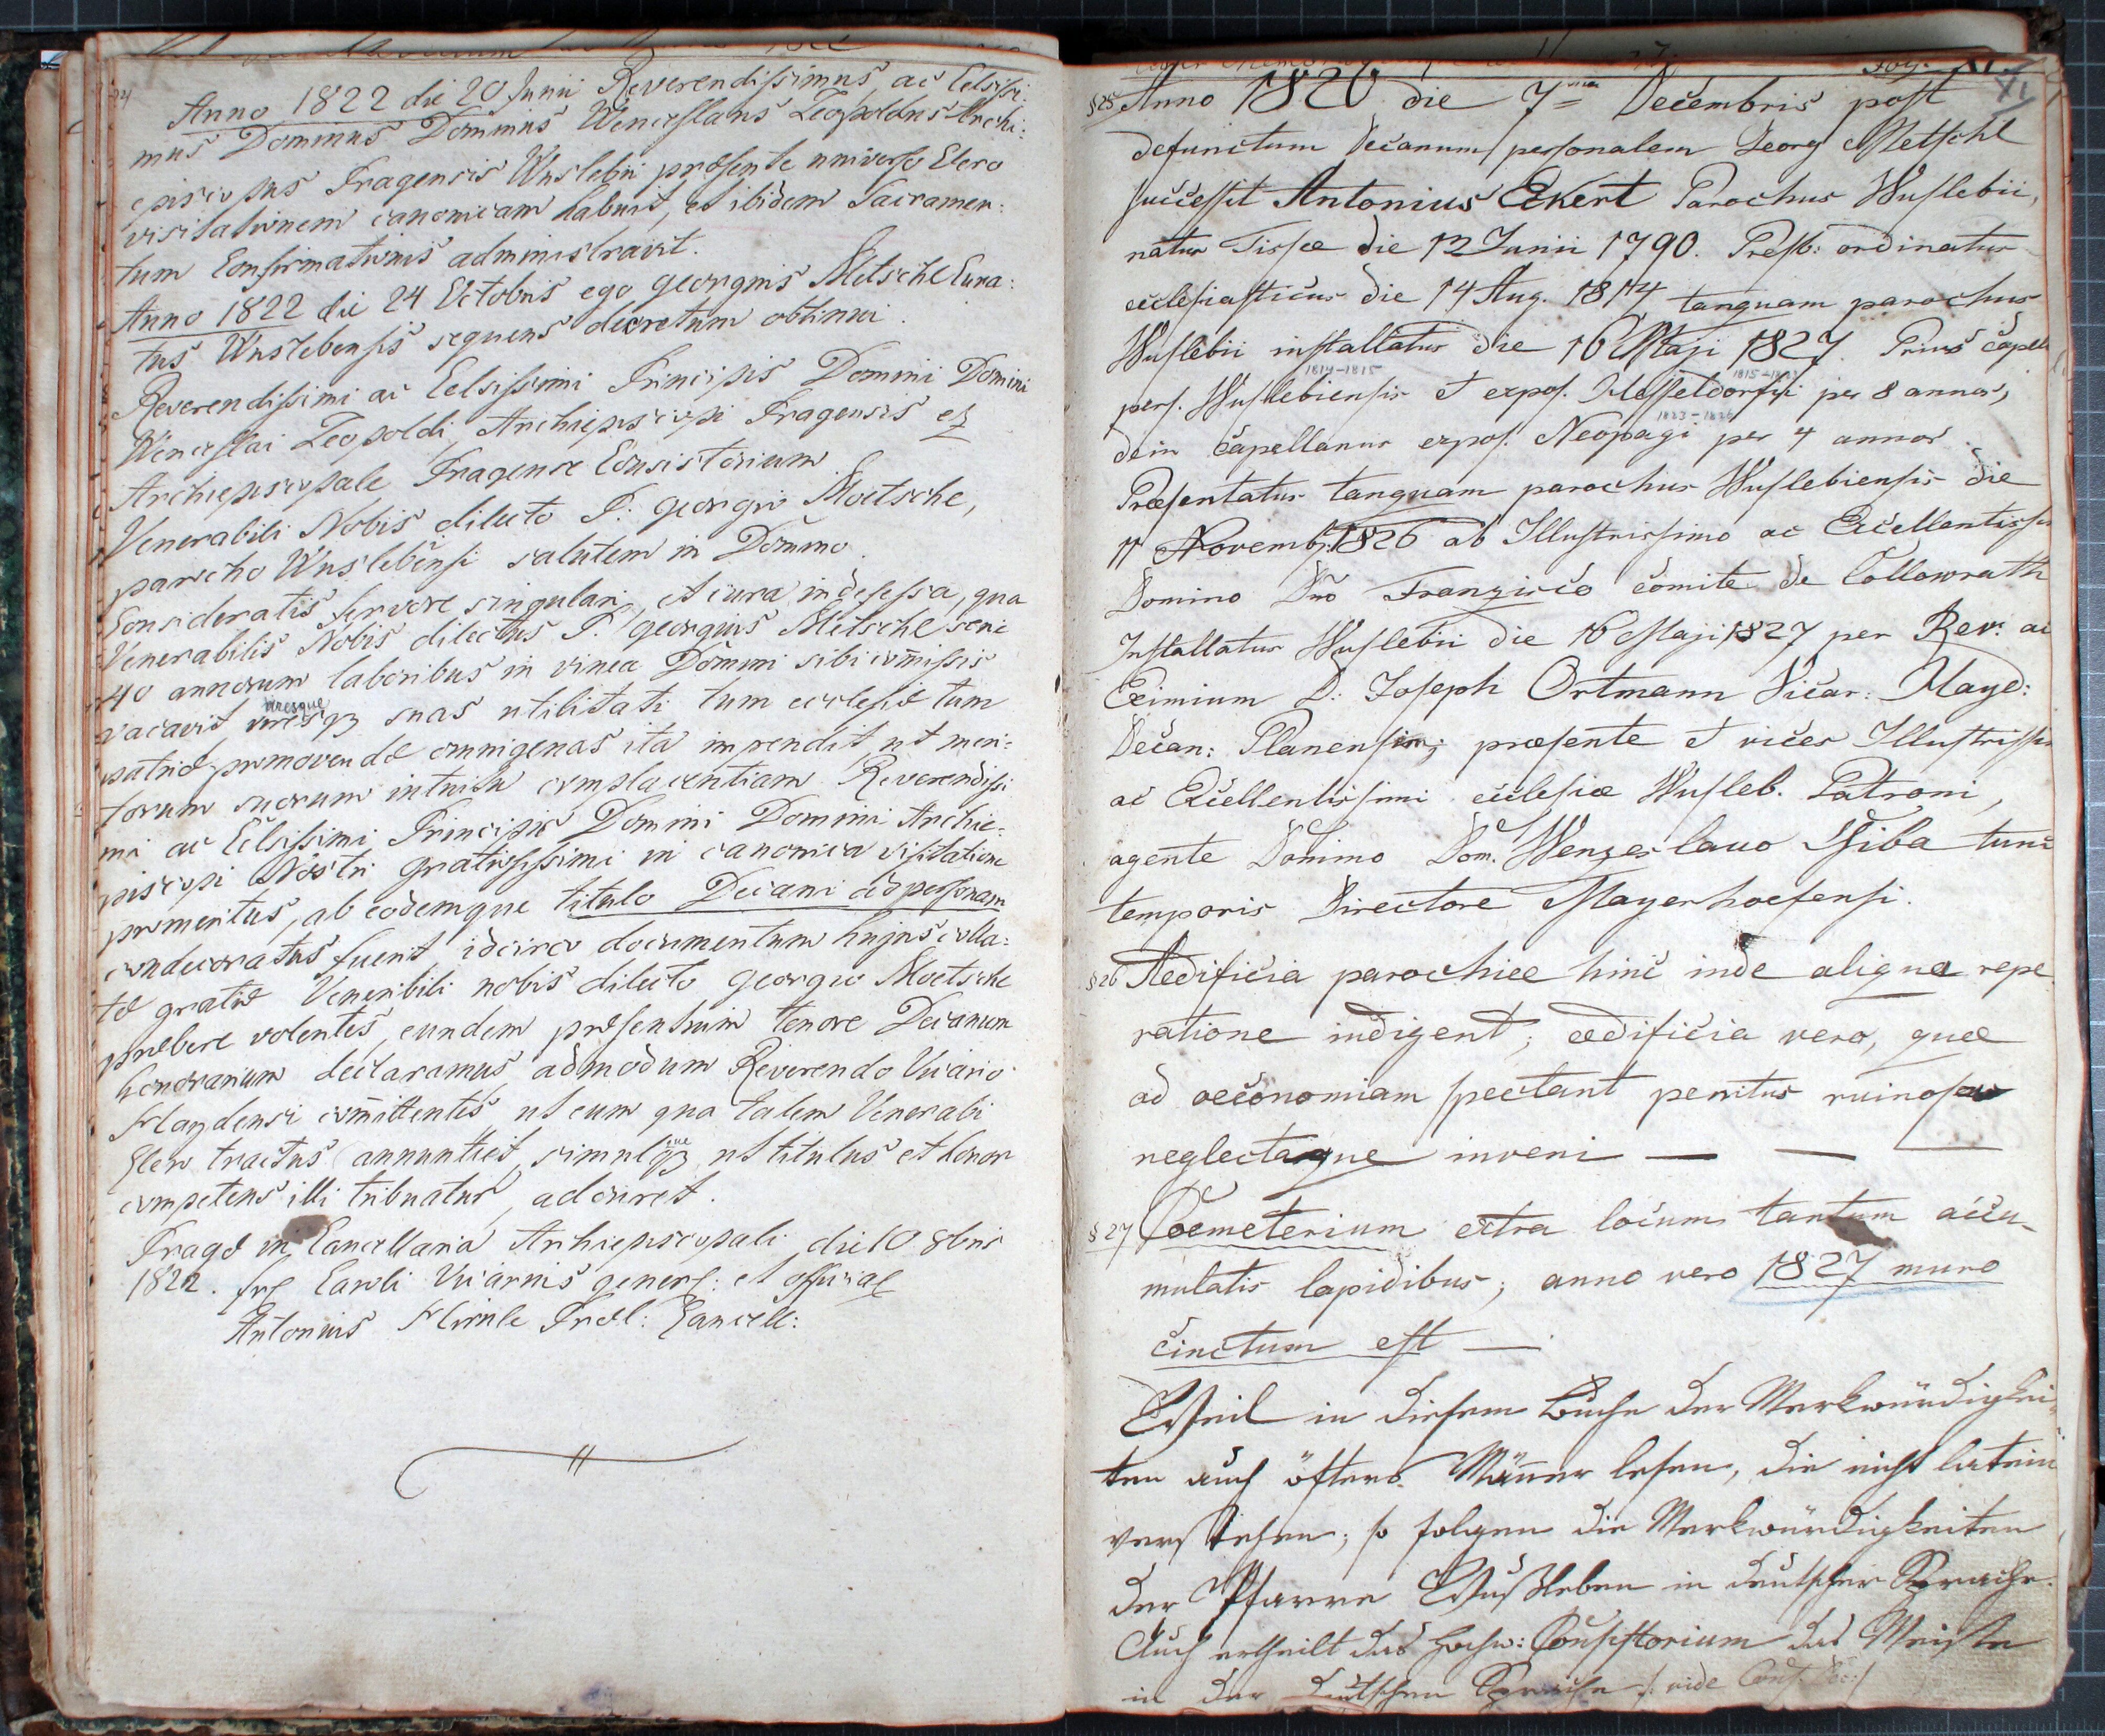 Anno 1822 die 20 Junii Reverendissimus, ac Celsissi:
mus Dominus Dominus Wenceslaus Leopoldus Archi:
episcopus Pragensis Wuslebii præsente universo Clero
visitationem canonicam habuit, et ibidem Sacramen:
tum Confirmationis administravit.
Anno 1822 die 24 Octobris ego georgius Metschl Cura:
tus Wuslebensis sequens decretum obtinui.
Reverendissimi ac Celsissimi Principis Domini Domini
Wenceslai Leopoldi, Archiepiscopi Pragensis et
Archiepiscopale Pragense Consistorium
Venerabili Nobis dilecto P. georgio Moetschl,
parocho Wuslebensi salutem in Domino.
Consideratis fervore singulari, et cura indefessa, qua
Venerabilis Nobis dilectus P. georgius Metschl serie
40 annorum laboribus in vinea Domini sibi com̄issis
vacavit, viresq̨ suas utilitati tum ecclesiæ tum
viresque
patriæ promovendæ omnigenas ita impendit, ut meri:
torum suorum intuitu complacentiam Reverendissi
mi ac Celsissimi Principis Domini Domini Archie:
piscopi Nostri gratiosissimi in canonica visitatione
promeritus, ab eodemque titulo Decani ad personam
condecoratus fuerit, idcirco documentum hujus colla:
tæ gratiæ Venerabili nobis dilecto georgio Moetschl
præbere volentes, eundem præsentium tenore Decanum
honorarium declaramus, admodum Reverendo Vicario
Haydensi com̄ittentes, ut eum qua talem Venerabi
Clero tractus annuntiet, simulq̨ ut titulus et honor
que
competens illi tribuatur, adcuret.
Pragæ in Cancellaria Archiepiscopali die 10 8bris
1822. Caroli Vicarius general: et official
Antonius Præl: Cancell:
XI
§25 Anno 1826 die 7ma Decembris post
defunctum Decanum personalem Georg Metschl
successit Antonius Eckert Parochus Wuslebii,
natus Tissæ die 12 Junii 1790. Presb: ordinatus
ecclesiasticus die 14 Aug. 1814 tanquam parochus
Wuslebii installatus die 16 Maji 1827. Prius capell
1814-1815 1815-1823
pers. Wuslebiensis et expos. Hesseldorfii per 8 annos,
1823-1826
dein Capellanus expos. Neopagi per 4 annos.
Præsentatus tanquam parochus Wuslebiensis die
11 Novemb: 1826 ab Illustrissimo ac Excellentissi
Domino Dno Franzisco comite de Collowrath
Installatus Wuslebii die 16 Maji 1827 per Rev: ac
Eximium D: Joseph Ortmann Vicar: Hayd:
Decan: Planensem; præsente et vices Illustrissi
ac Excellentissimi ecclesiæ Wusleb. Patroni,
agente Domino Dom. Wenzeslauo Skiba tunc
temporis Directore Mayerhoefensi.
§26 Aedificia parochiæ hinc inde aliqua repe
ratione indigent; ædificia vero, quæ
ad oeconomiam spectant penitus ruinosa
neglectaque inveni — —
§27 Coemeterium extra locum tantum accu-
mulatis lapidibus; anno vero 1827 muro
cinctum est —
Weil in diesem Buche der Merkwürdigkei-
ten auch öfters Männer lesen, die nicht latein
verstehen; so folgen die Merkwürdigkeiten
der Pfarre Wußleben in deutscher Sprache.
Auch ertheilt das hochw: Consistorium das Meiste
in der deutschen Sprache /: vide Cons. Dec:/